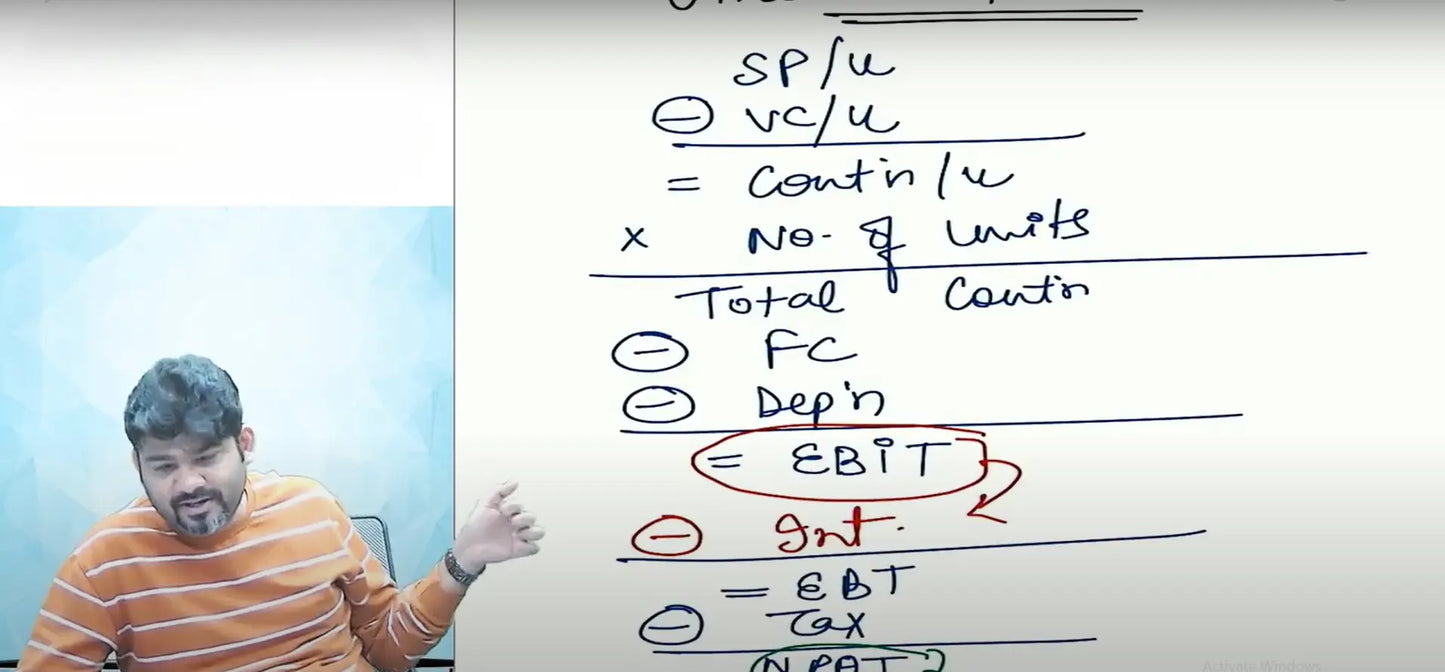 SP/u
⊖ VC/u
= Contin/u
x No. of units
Total Contin
⊖ FC
⊖ Dep'n
= EBiT
⊖ Int.
= EBT
⊖ Tax
NPAT
Activate Windows